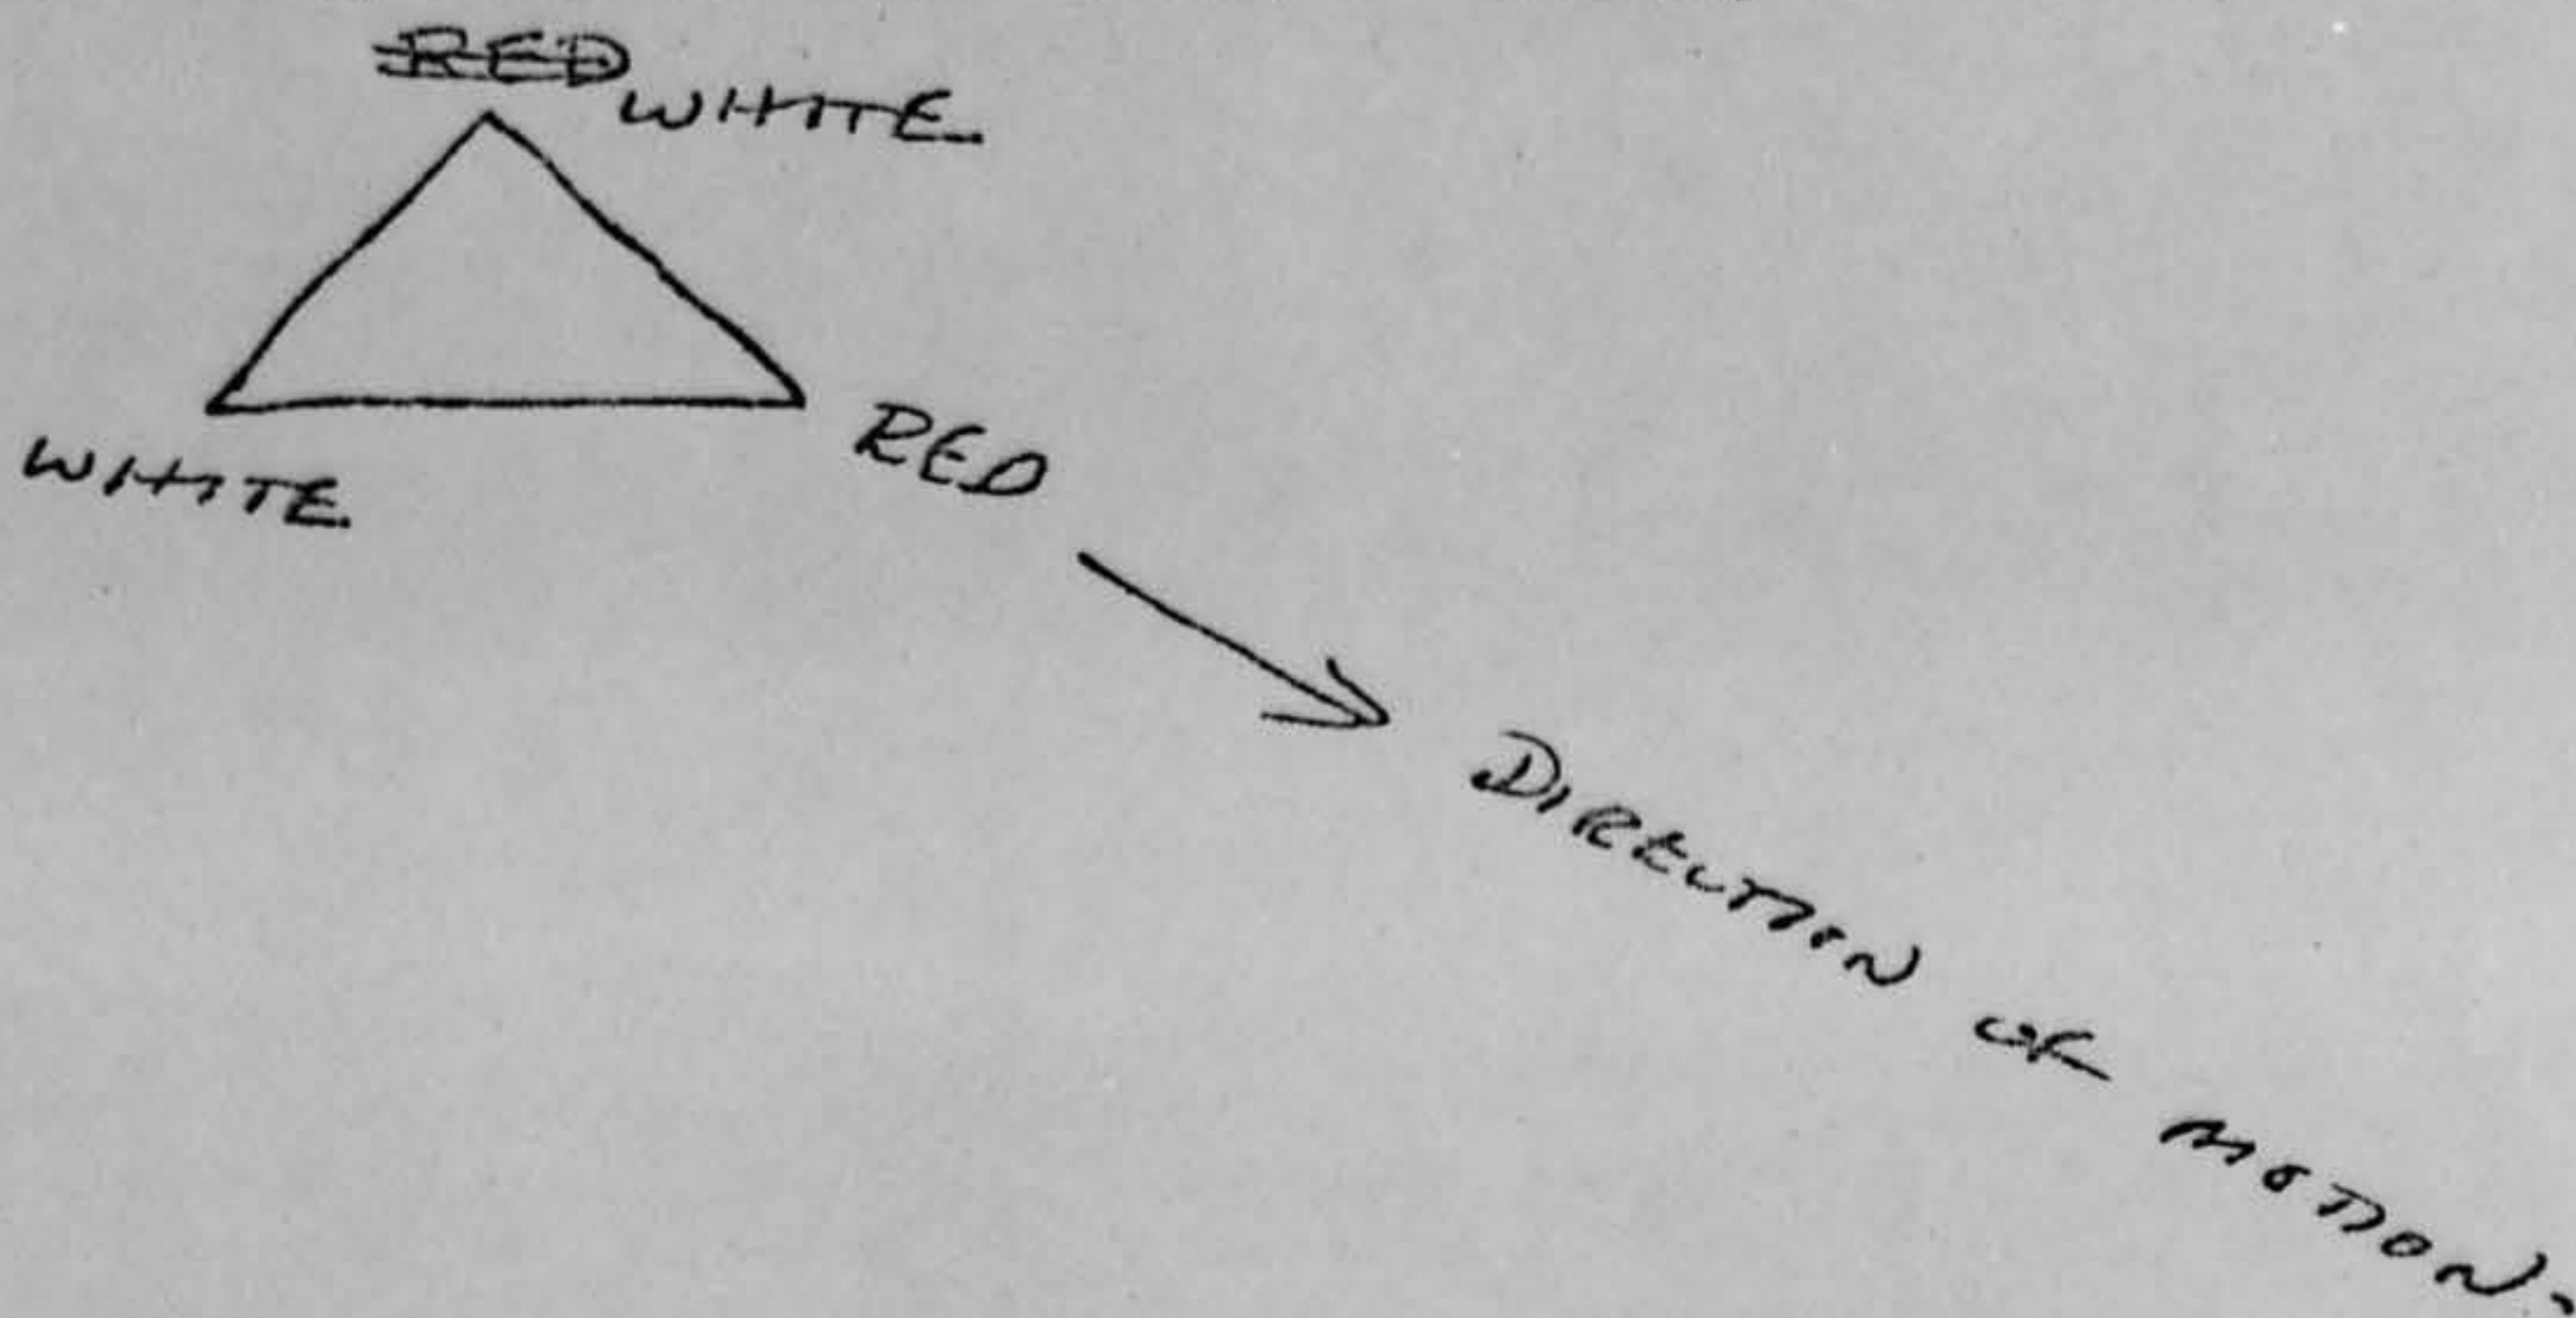 RED
WHITE
WHITE
RED
DIRECTION OF MOTION.